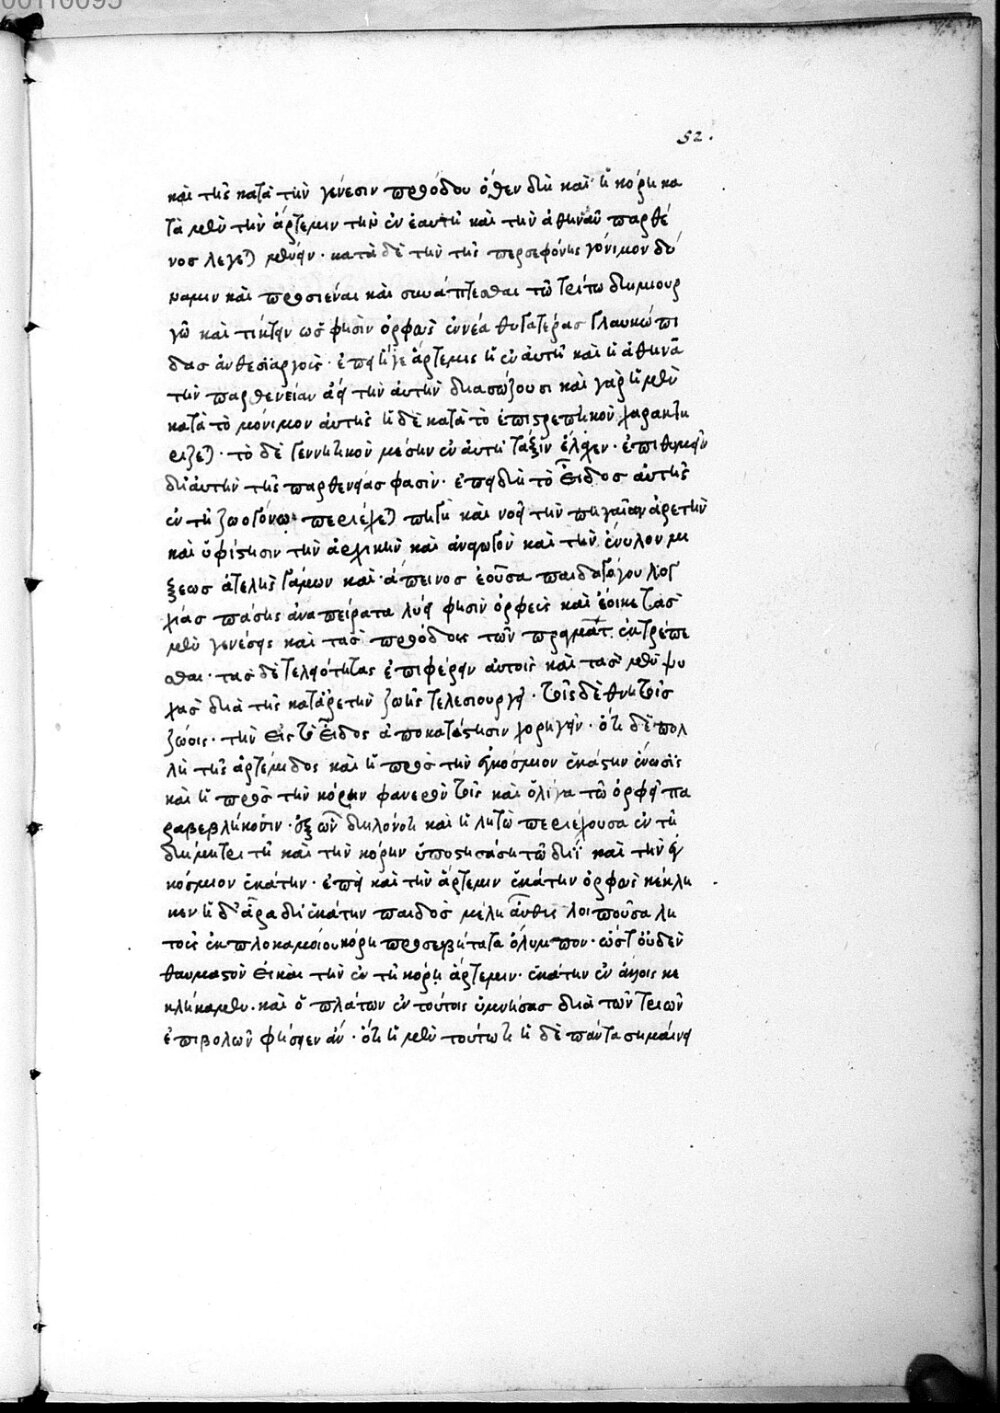 00110095
52.
καὶ τῆς κατὰ τὴν γένεσιν προόδου ὅθεν δὴ καὶ ἡ κόρη κα
τὰ μὲν τὴν ἄρτεμιν τὴν ἐν ἑαυτῆ καὶ τὴν ἀθηνᾶν παρθέ
νος λέγεται μένειν · κατὰ δὲ τὴν τῆς περσεφόνης γόνιμον δύ
ναμιν καὶ προσιέναι καὶ συνάπτεσθαι τῶ τρίτω δημιουρ
γῶ καὶ τίκτειν ὥς φησιν ὀρφεὺς ἐννέα θυγατέρας γλαυκώπι
δας ἀνθεσιαργούς · ἐπεὶ ἥγε ἄρτεμις ἡ ἐν αὐτῆ καὶ ἡ ἀθηνᾶ
τὴν παρθενείαν ἀεὶ τὴν αὐτὴν διασώζουσι καὶ γὰρ ἡ μὲν
κατὰ τὸ μόνιμον αὐτῆς ἡ δὲ κατὰ τὸ ἐπιστρεπτικὸν χαρακτη
ρίζεται · τὸ δὲ γεννητικὸν μέσην ἐν αὐτῆ τάξιν ἔλαχεν · ἐπιθυμεῖν
δι αὐτὴν τῆς παρθενείας φασὶν · ἐπεὶ δὴ τὸ εἶδος αὐτῆς
ἐν τῆ ζωογόνω περιέχεται πηγῆ καὶ νοεῖ τὴν πηγαίαν ἀρετὴν
καὶ ὑφίστησιν τὴν ἀρχικὴν καὶ ἄνωγον καὶ τὴν ἔνυλον μι
ξεως ἀτελὴς γάμων καὶ ἀπεινος ἐοῦσα παιδαγόγου λοχ
χίας πάσης ἀνα πείρατα λύει φησὶν ὀρφεὺς καὶ ἔοικε τὰς
μὲν γενέσεις καὶ τὰς προόδους τῶν πραγμάτ. ἐκτρέπε
σθαι · τὰς δὲ τελειότητας ἐπιφέρειν αὐτοῖς καὶ τὰς μὲν ψυ
χὰς διὰ τῆς κατ ἀρετὴν ζωῆς τελεσιουργεῖ · τοῖς δὲ θνητοῖς
ζώοις · τὴν εἰς τὸ εἶδος ἀποκατάστησιν χορηγεῖν · ὅτι δὲ πολ
λὴ τῆς ἀρτέμιδος καὶ ἡ πρὸς τὴν ἐγκόσμιον ἑκάτην ἕνωσίς
καὶ ἡ πρὸς τὴν κόρην φανερὸν τοῖς καὶ ὀλίγα τῶ ὀρφεῖ πα
ραβεβληκόσιν · ἐξ ὧν δηλονότι καὶ ἡ λητὼ περιέχουσα ἐν τῆ
δημήτρι τῆ καὶ τὴν κόρην ὑποστησάση τῶ διῒ καὶ τὴν ἐγ
κόσμιον ἑκάτην · ἐπεὶ καὶ τὴν ἄρτεμιν ἑκάτην ὀρφεὺς κέκλη
κεν ἡ δ' ἄρα δι ἑκάτην παιδὸς μέλη αὖθις λοιποῦσα λη
τοῦς ἐκπλοκαμοίου κόρη προσεβήτατα ὄλυμπον · ὥστ οὐδὲν
θαυμαστὸν εἰ καὶ τὴν ἐν τῆ κόρη ἄρτεμιν · ἑκάτην ἐν ἄλλοις κε
κλήκαμεν · καὶ ὁ πλάτων ἐν τούτοις ὑμνήσας διὰ τῶν τριῶν
ἐπιβολῶν φήσειεν ἄν · ὅτι ἡ μὲν τούτω τι ἡ δὲ πάντα σημαίνει